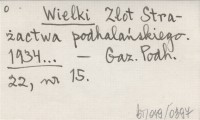 Wielki Zlot Stra-
żactwa podhalańskiego.
1934... — Gaz. Podh.
22, nr 15.